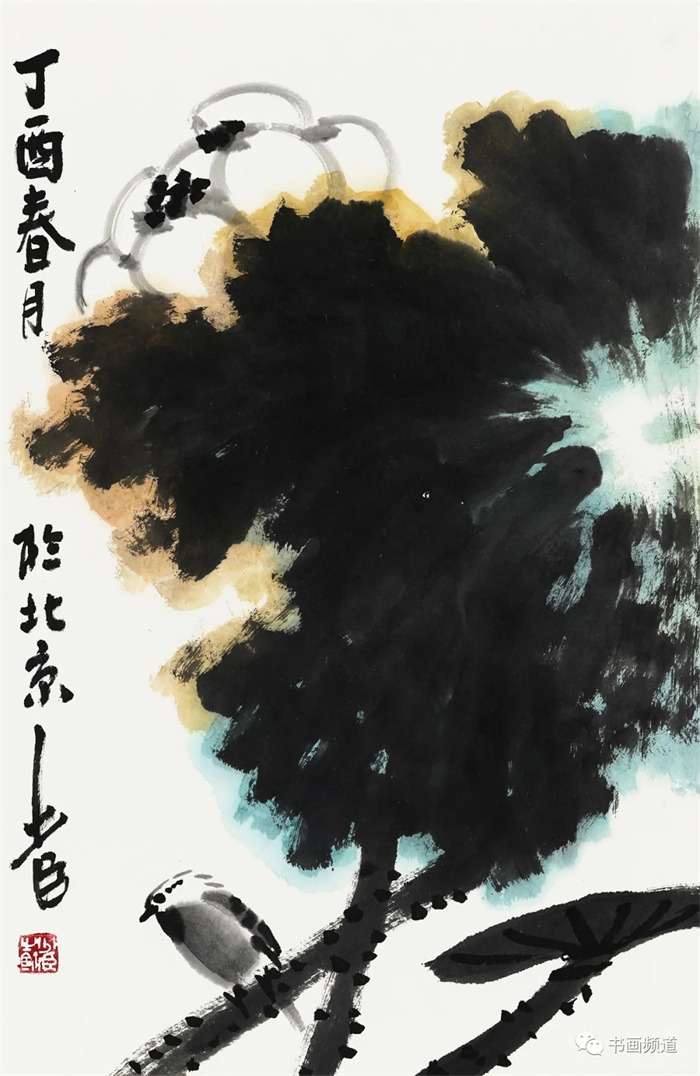 丁酉春月
於北京
书画频道